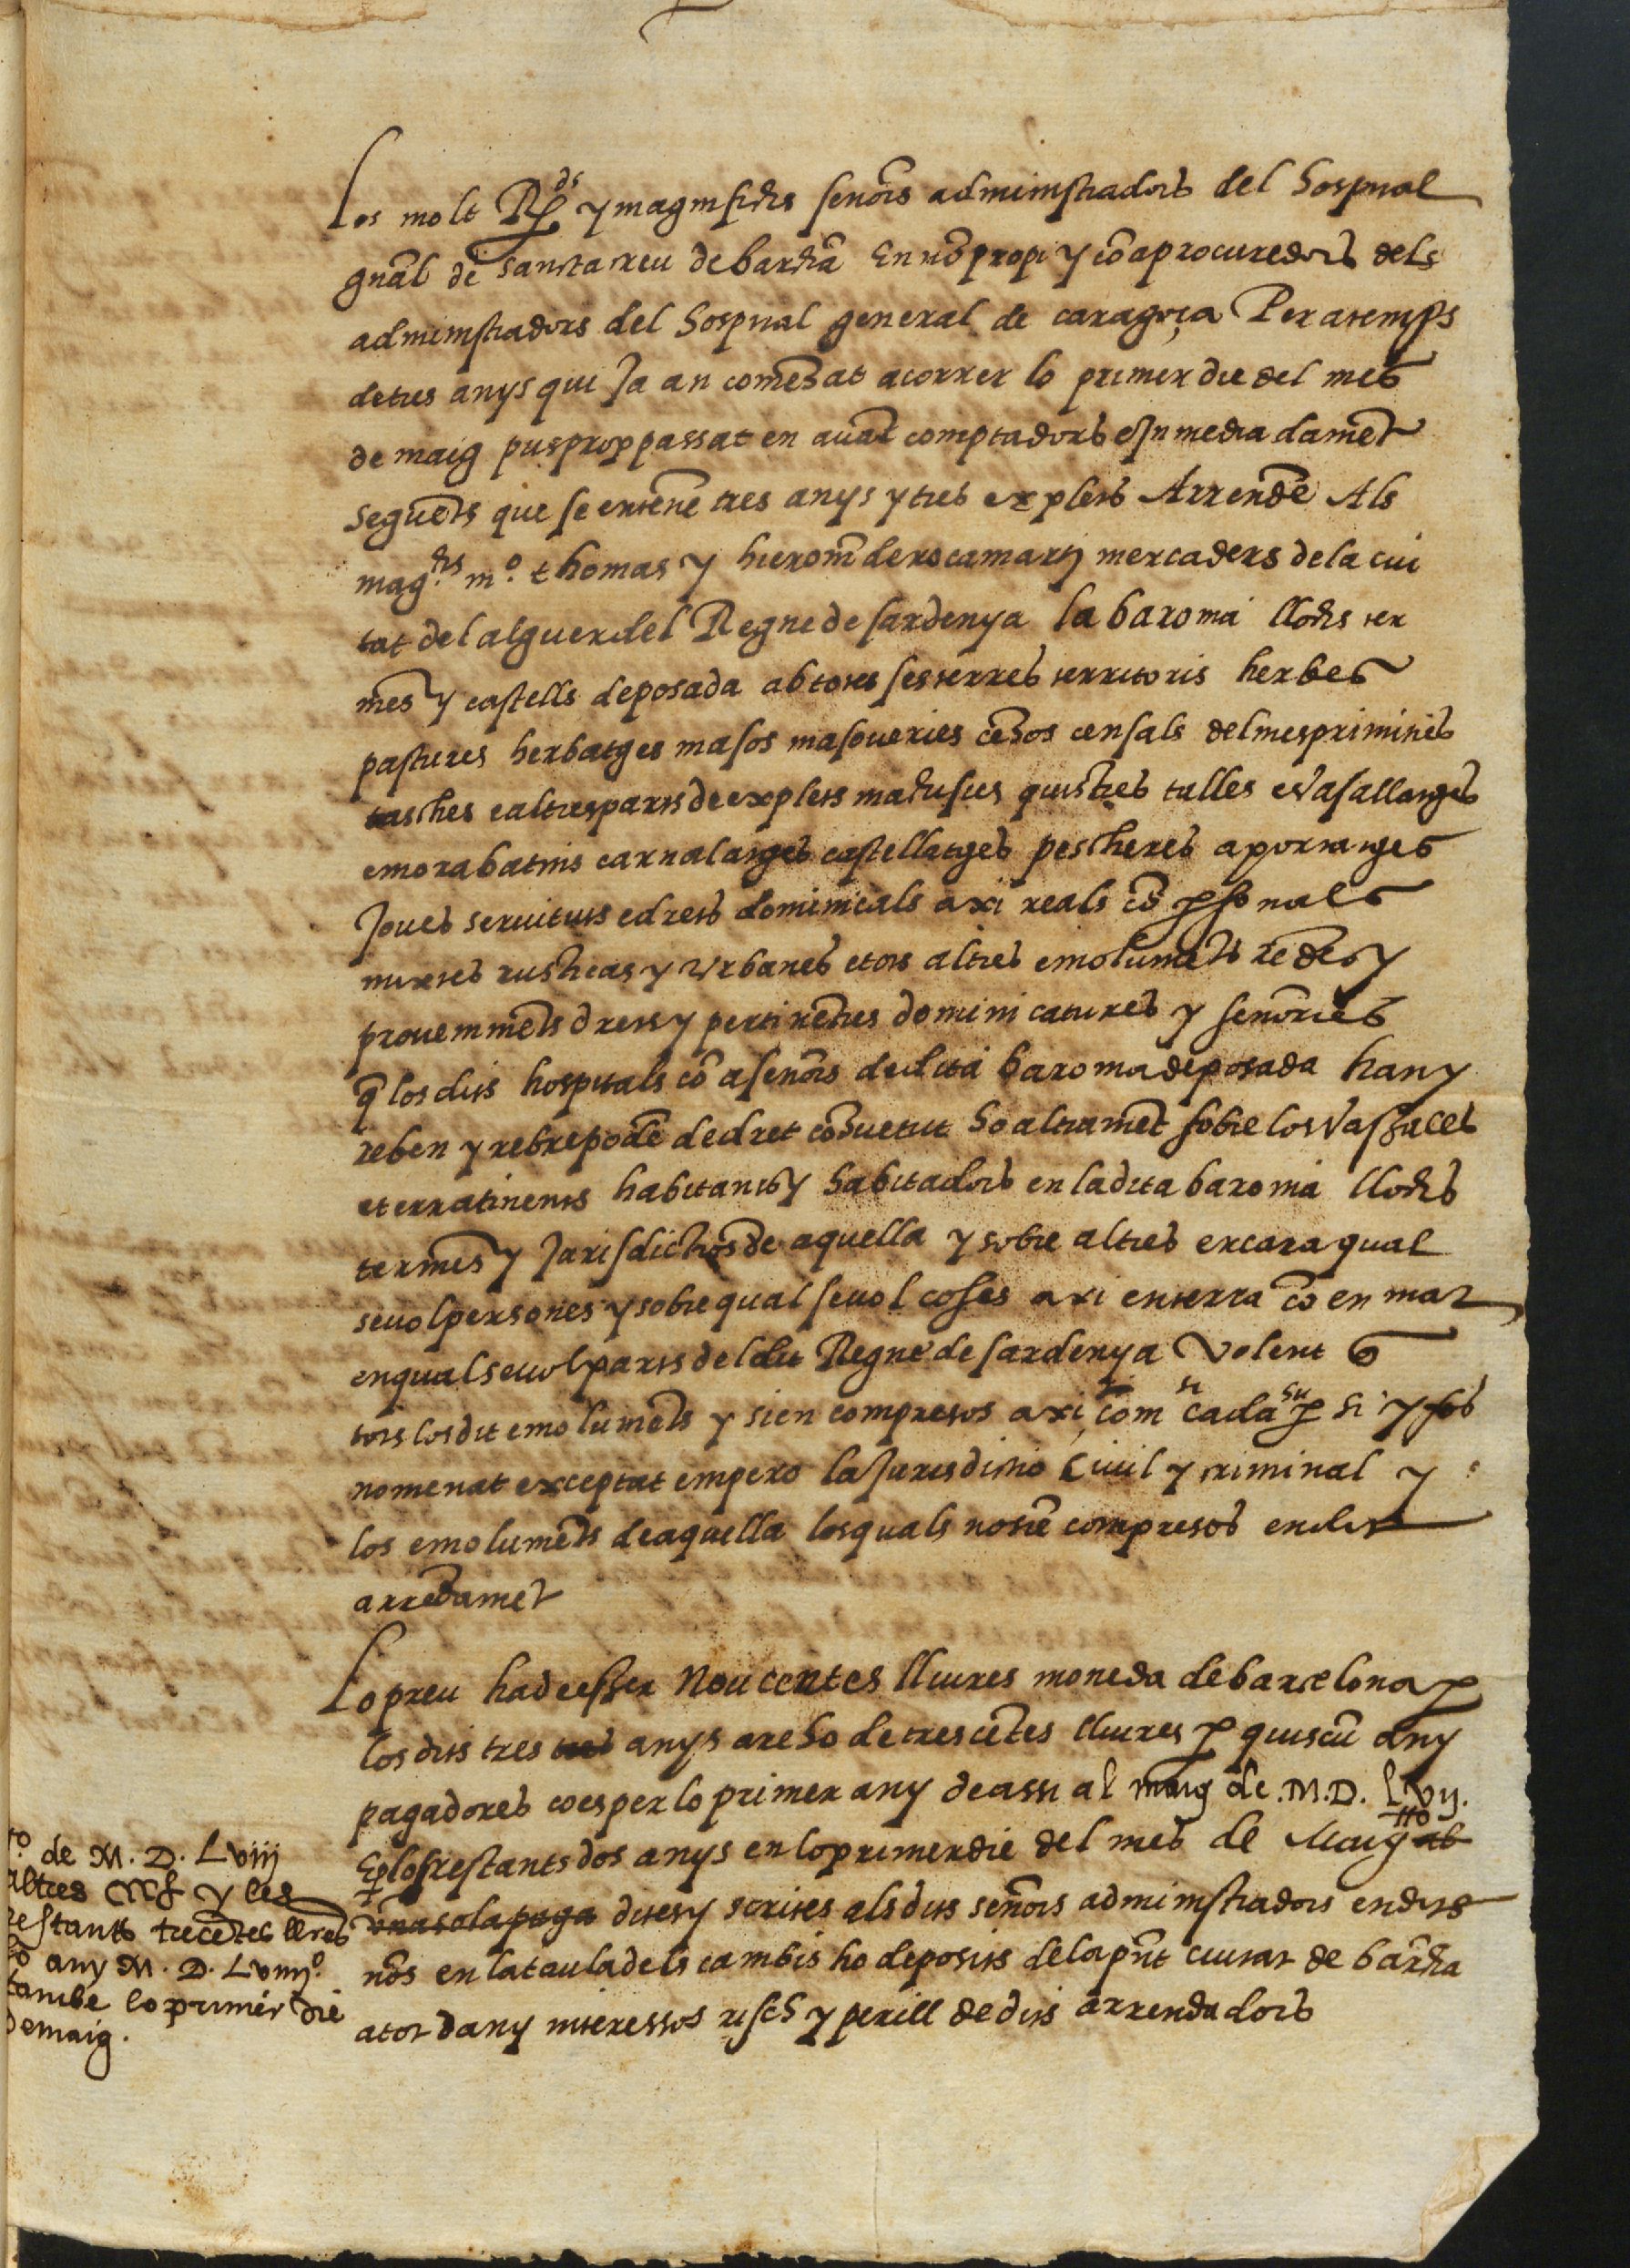 Los molt R.ds y magnifichs señors administradors del hospital
gnãl de sancta creu de barña En nõ propi y cõ a procuradors dels
administradors del hospital general de caragoça Per a temps
de tres anys qui Ja an comẽsat a correr lo primer die del mes
de maig pus prop passat en auãt comptadors e Inmediadamẽt
seguẽts que se entene tres anys y tres explets Arrendẽ Als
mag.chs m.o thomas y hieronĩ de rocamarti mercaders de la ciu
tat del alguer del Regne de sardenya la baronia llochs ter
mes y castells de posada ab totes ses terres territoris herbes
pastures herbatges masos masoueries cẽsos censals delmes primities
tasches e altres parts de explets quisties talles e vasallatges
e morabatins carnalatges castellatges pescheres aportatges
Joues seruituts e drets dominicals axi reals cõ psonals
mixtes rusticas y vrbanes e tots altres emolumẽts rẽdes y
prouenimẽts drets y pertinẽties dominicatures y señories
q̃ los dits hospitals cõ a señors de dita baronia de posada han y
reben y rebre podẽ de dret cõsuetut ho altramẽt sobre los vassalls
e terratinents habitants y habitadors en la dita baronia llochs
termẽs y Jurisdictiõs de aquella y sobre altres encara qual
seuol persones y sobre qual seuol coses axi en terra cõ en mar
en qualseuol parts del dit Regne de sardenya Volent
tots los dit emolumẽts y sien compresos axi com si cada hu p si y fos
nomenat exceptat empero la Juresdictio Ciuil y criminal y
los emolumẽts de aquella los quals no siẽ compresos en dit
arrẽdamẽt
Lo preu ha de esser Nou centes lliures moneda de barcelona p
los dits tres tres anys areho de trescẽtes lliures p quiscũ any
pagadores co es per lo primer any de assi al maig de .M.D. Lvij.
E p los restants dos anys en lo primer die del mes de Maig ab
vna sola paga dites y scrites als dits señors administradors en dits
nõs en la taula dels cambis ho deposits de la pñt ciutat de barña
a tot dany interessos risch y perill de dits arrendadors
to de M. D. Lviij
altres y les
restants trecẽtes llres
lo any M. D. Lviiij.o
tambe lo primer die
de maig.